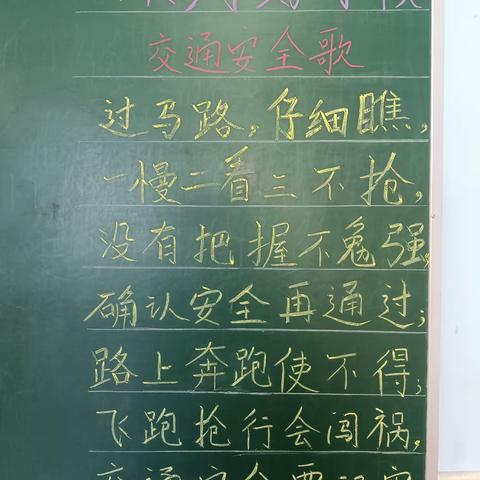 交通安全歌
过马路,仔细瞧,
一慢二看三不抢,
没有把握不勉强,
确认安全再通过;
路上奔跑使不得;
飞跑抢行会闯祸,
交通安全要记牢